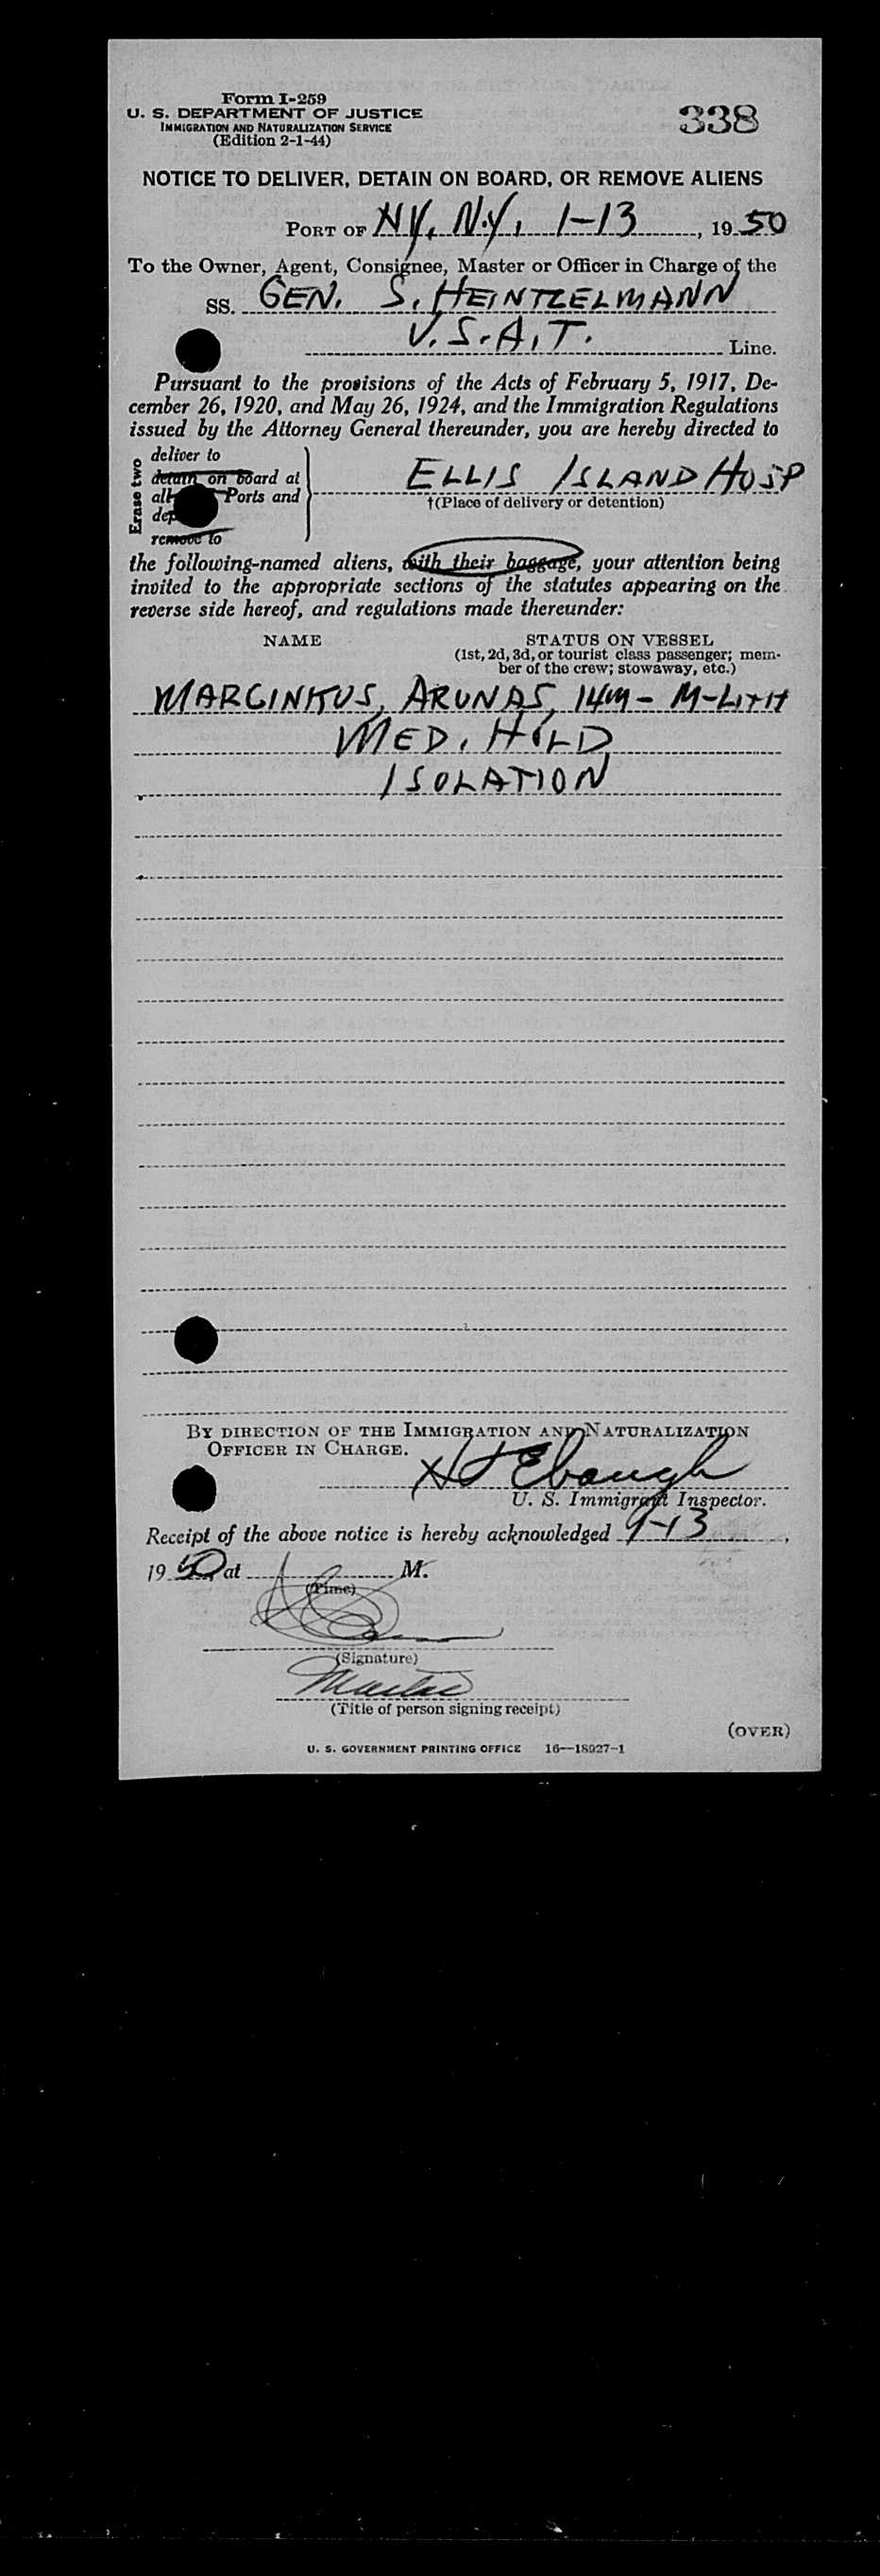 Form I-259
U. S. DEPARTMENT OF JUSTICE
IMMIGRATION AND NATURALIZATION SERVICE
(Edition 2-1-44)
338
NOTICE TO DELIVER, DETAIN ON BOARD, OR REMOVE ALIENS
PORT OF NY, N.Y, 1-13, 1950
To the Owner, Agent, Consignee, Master or Officer in Charge of the
SS. GEN. S. HEINTZELMANN
U.S.A.T. Line.
Pursuant to the provisions of the Acts of February 5, 1917, De-
cember 26, 1920, and May 26, 1924, and the Immigration Regulations
issued by the Attorney General thereunder, you are hereby directed to
Erase two
deliver to
detain on board at
all Ports and
remove to
ELLIS ISLAND HOSP
†(Place of delivery or detention)
the following-named aliens, with their baggage, your attention being
invited to the appropriate sections of the statutes appearing on the
reverse side hereof, and regulations made thereunder:
NAME
STATUS ON VESSEL
(1st, 2d, 3d, or tourist class passenger; mem-
ber of the crew; stowaway, etc.)
MARCINKUS, ARUNAS, 14M- M-LITH
MED. HOLD
ISOLATION
BY DIRECTION OF THE IMMIGRATION AND NATURALIZATION
OFFICER IN CHARGE.
Ebaugh
U. S. Immigrant Inspector.
Receipt of the above notice is hereby acknowledged 1-13,
1950, at M.
(Time)
(Signature)
Master
(Title of person signing receipt)
(OVER)
U. S. GOVERNMENT PRINTING OFFICE 16—18927-1